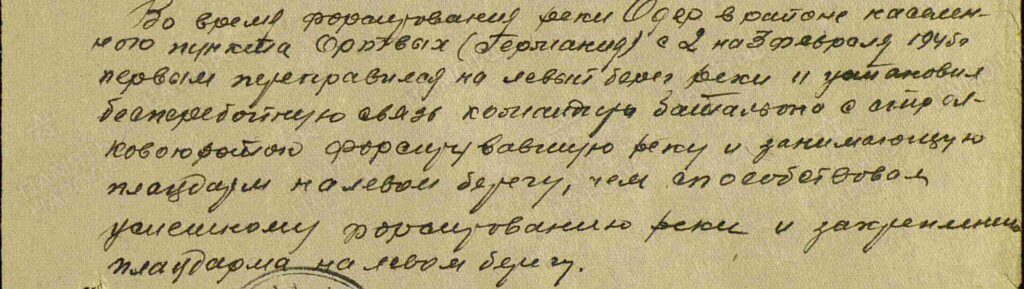 Во время форсирования реки Одер в районе населен-
ного пункта (Германия) с 2 на 3 февраля 1945г
первым переправился на левый берег реки и установил
бесперебойную связь командиру батальона с стрел-
ковою ротою форсирувавшую реку и занимающую
плацдарм на левом берегу, чем способствовал
успешному форсированию реки и закреплению
плацдарма на левом берегу.